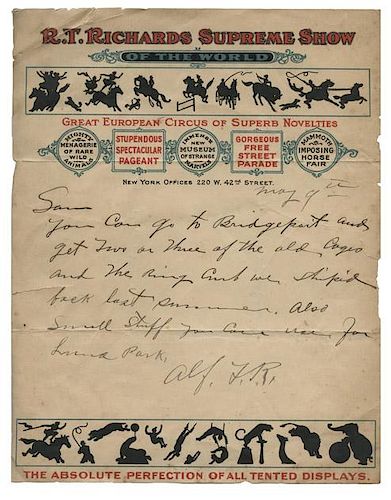 R.T. RICHARDS SUPREME SHOW
OF THE WORLD
GREAT EUROPEAN CIRCUS OF SUPERB NOVELTIES
MIGHTY MENAGERIE OF RARE WILD ANIMALS
STUPENDOUS SPECTACULAR PAGEANT
IMMENSE NEW MUSEUM OF STRANGE MARVELS
GORGEOUS FREE STREET PARADE
MAMMOTH IMPOSING HORSE FAIR
NEW YORK OFFICES 220 W. 42ND STREET.
May 9th
Sam
You Can go to Bridgeport and
get Two or Three of the old Cages
and The Ring Curb we shiped
back last summer. Also
Small Stuff you can use for
Luna Park.
Alf. T. R.
THE ABSOLUTE PERFECTION OF ALL TENTED DISPLAYS.